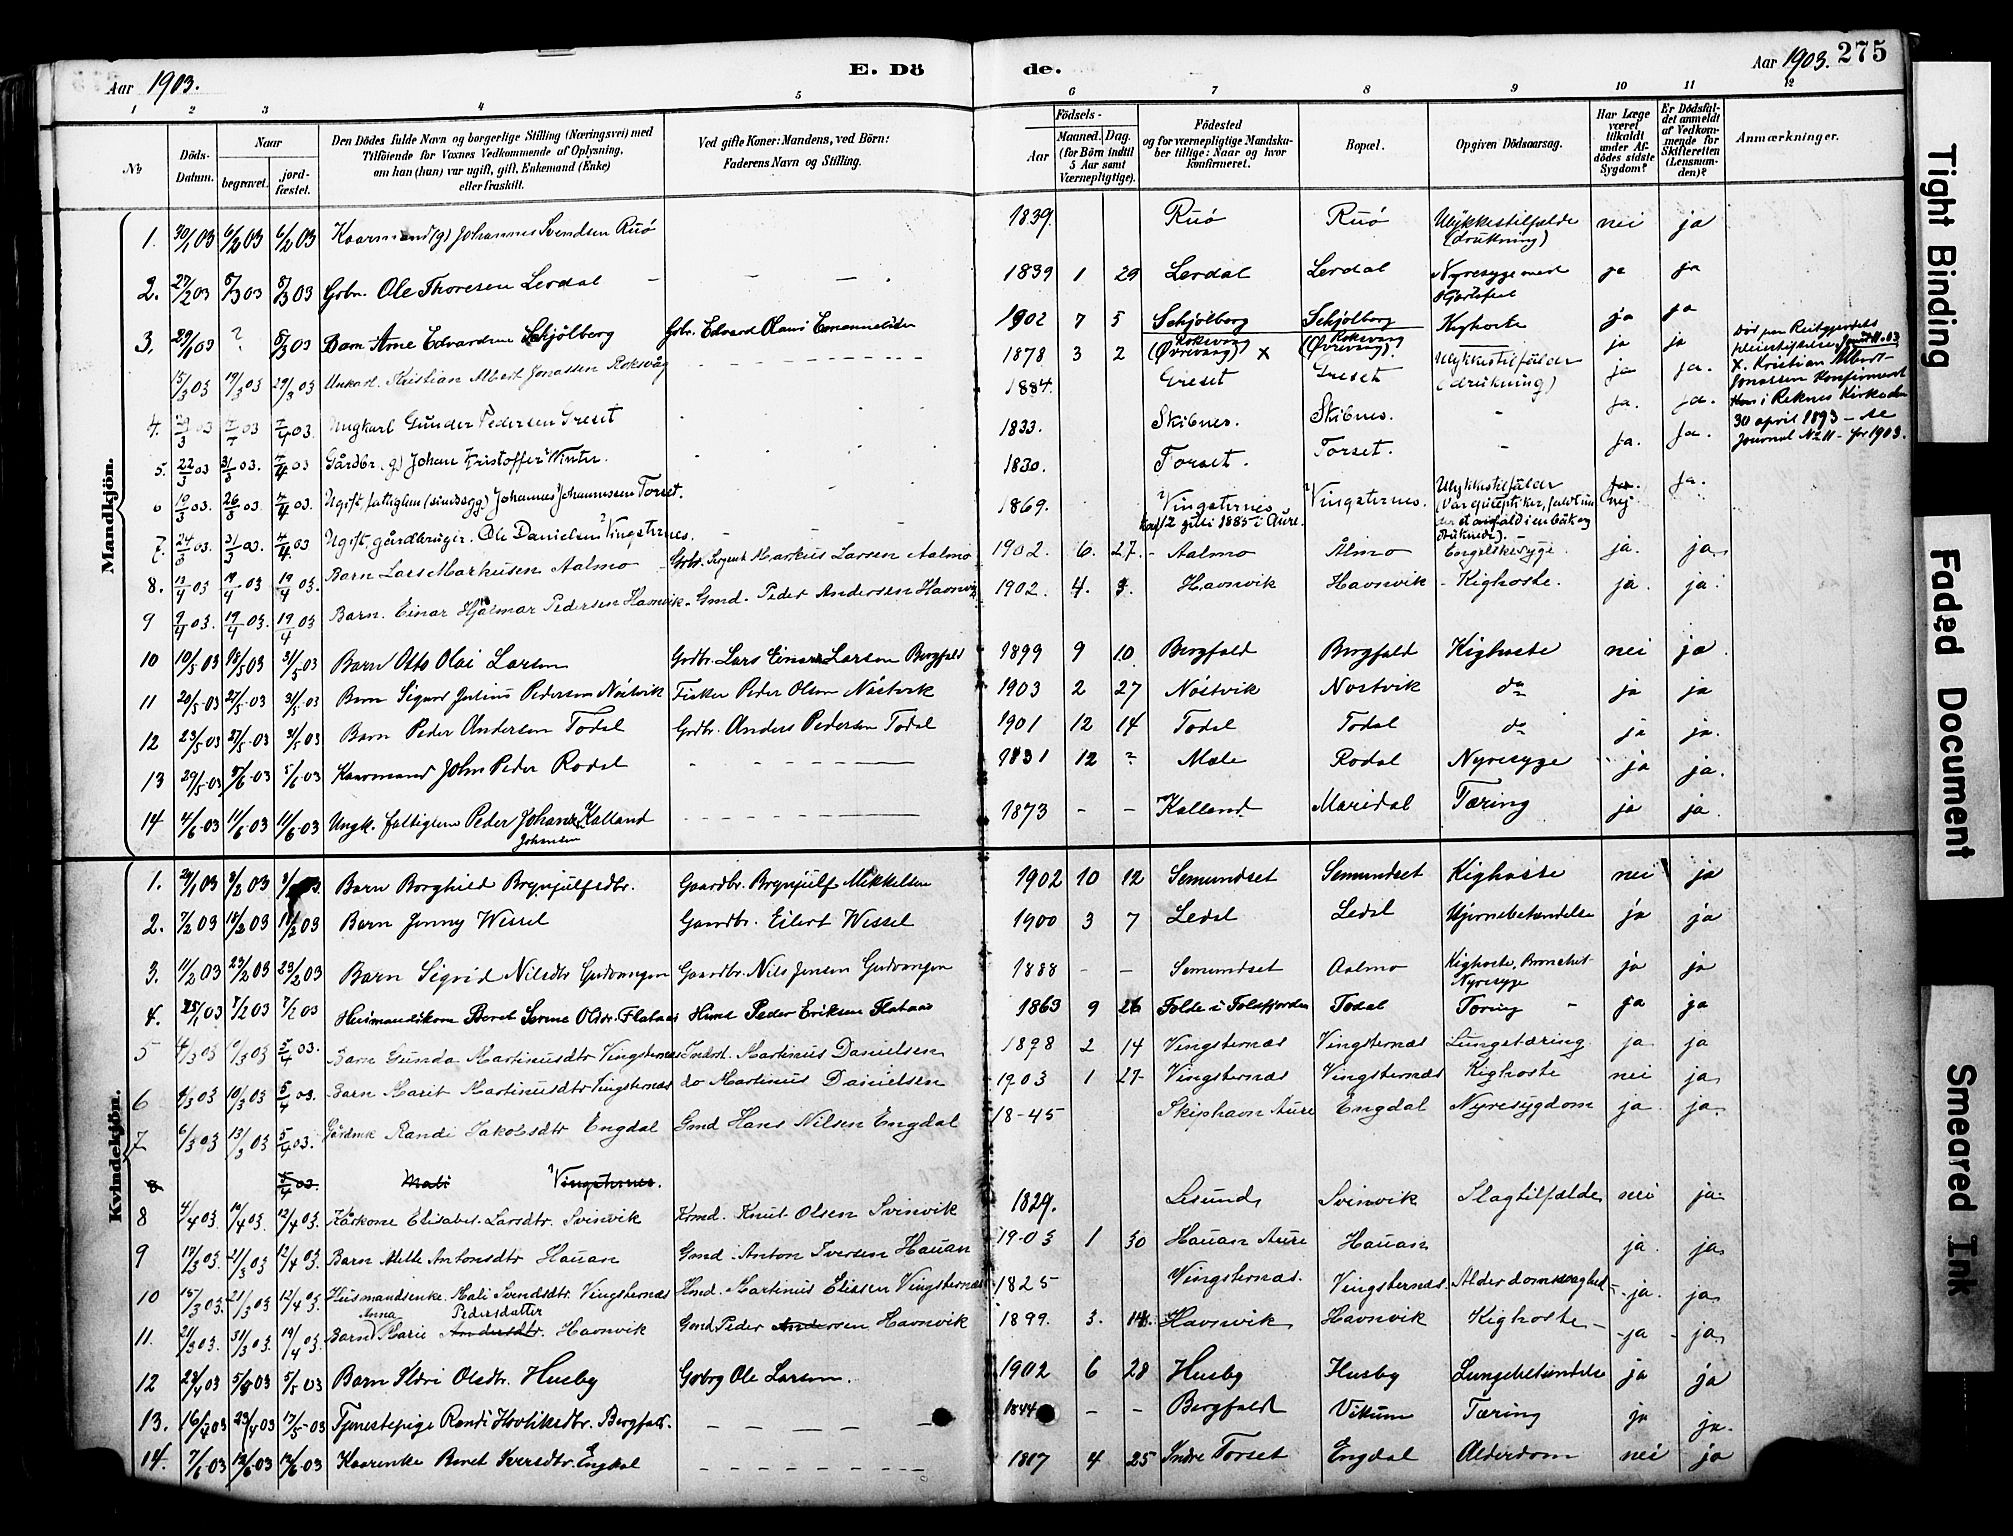 Aar 1903. E. Dö de. Aar 1903. 275
1 2 3 4 5 6 7 8 9 10 11 12
No Döds-Datum. Naar begravet. jord-fæstet. Den Dödes fulde Navn og borgerlige Stilling (Næringsvei) med Tilföiende for Voxnes Vedkommende af Oplysning, om han (hun) var ugift, gift, Enkemand (Enke) eller fraskilt. Ved gifte Koner: Mandens, ved Börn: Faderens Navn og Stilling. Födsels- Aar Maaned. Dag. (for Börn indtil 5 Aar samt Værnepligtige). Födested og for værnepligtige Mandskaber tillige: Naar og hvor konfirmeret. Bopæl. Opgiven Dödsaarsag. Har Læge været tilkaldt under Afdödes sidste Sygdom? Er Dödsfaldet anmeldt af Vedkommende for Skifteretten (Lensmanden)? Anmærkninger.
Mandkjön.
1. 30/1 03 6/2 03 6/2 03 Kaarmand (g) Johannes Svendsen Ruø 1839. Ruø Ruø Ulykkestilfælde (drukning) nei ja
2. 27/2 03 8/3 03 8/3 03 Grbr. Ole Thoresen Lerdal 1839 1 29 Lerdal Lerdal Nyresyge med ja ja
3. 29/1 03 ? 8/3 03 Barn Arne Edvardsen Schjølberg Grbr. Edvard Olaus 1902 7 5 Schjølberg Schjølberg Kighoste ja ja
15/3 03 19/3 03 29/3 03 Unkarl. Kristian Albert Jonassen Roksvåg 1878 3 2 Roksvaag (Øvrevaag) x Roksvaag (Øvrevaag). Ulykkestilfælde (drukning) ja ja
x. Kristian Albert Jonassen Konfirmeret i Reknes Kirke den 30 april 1893 - se Journal No 11 - for 1903.
4. 29/3 03 7/4 03 7/4 03. Ungkarl Gunder Pedersen Greset 1884. Greset Greset ja. ja.
5. 22/3 03 31/3 03. 7/4 03 Gårdbr. (g) Johan Kristoffer Winter. 1833. Skibnes. Skibnes. ja. ja.
6 19/3 03 26/3 03 7/4 03. Ugift, fattiglem (sindssyg) Johannes Johannessen Torset. 1830. Torset. Torset. ja. ja.
7. 24/3 03. 31/3 03. 7/4 03 Ugift, gårdbruger. Ole Danielsen Vingsternes. 1869. Vingsternes konf 12 1885 i Aure. Vingsternes. Ulykkestilfælde (Var epileptiker, faldt under et anfald i en bæk og druknede). nej ja.
8. 13/4 03 19/4 03 19/4 03. Barn Lars Markusen Aalmo Grbr. Sergent Markus Larsen Aalmo 1902. 6. 27. Aalmo Ålmo Engelskesyge. ja. ja.
9 9/4 03. 19/4 03. 19/4 03 Barn. Einar Hjalmar Pedersen Havnvik. Gmd. Peder Andersen Havnvig 1902. 4. 3. Havnvik Havnvik Kighoste. ja. ja.
10 10/5 03 18/5 03 31/5 03 Barn Otto Olai Larsen Grdbr. Lars Einar Larsen Bergfald 1899 9 10 Bergfald Bergfald Kighoste nei ja
11 20/5 03 27/5 03 31/5 03 Barn Sigurd Julius Pedersen Nöstvik Fisker Peder Olsen Nöstvik 1903 2 27 Nöstvik Nöstvik do ja ja
12 23/5 03 27/5 03 31/5 03 Barn Peder Andersen Todal Grdbr. Anders Pedersen Todal 1901 12 14 Todal Todal do ja ja.
13 29/5 03 5/6 03 5/6 03 Kaarmand John Peder Rodal 1831 12 ? Mæle Rodal Nyresyge ja ja.
14 4/6 03 11/6 03 11/6 03 Ungk. fattiglem Peder Johan Kalland Johnsen 1873 - - Kalland Maridal Tæring ja ja.
Kvindekjön.
1. 29/1 03 8/2 03 Barn Borghild Brynjulfsdtr. Gaardbr. Brynjulf Mikkelsen 1902 10 12 Semundset Semundset Kighoste nei ja
2. 7/2 03 18/2 03 18/2 03 Barn Jenny Wessel Gaardbr. Eilert Wessel 1900 3 7 Ledal Ledal Hjernebetændelse ja ja
3. 11/2 03 23/2 03 23/2 03 Barn Sigrid Nilsdtr Gudvangen Gaardbr. Nils Jensen Gudvangen 1888 - - Semundset Aalmo Kighoste, Bronchit Nyresyge ja ja
4. 25/1 03 7/2 03 7/2 03 Husmandskone Beret Serine Olsdr. Flataas Husmd Peder Eriksen Flataas 1863 9 26 Folde i Folsfjorden Todal Tæring ja ja
5 4/3 03 9/3 03 5/4 03. Barn Gunda Martinusdtr Vingsternes Martinus Danielsen 1898 2 14 Vingsternæs Vingsternæs Lungetæring ja ja
6 4/3 03 10/3 03 5/4 03. Barn Marit Martinusdtr Vingsternæs do Martinus Danielsen 1903 1 27 Vingsternæs Vingsternæs Kighoste nei ja
7 6/3 03 13/3 03 5/4 03. Randi Jakobsdtr Engdal Gmd Hans Nilsen Engdal 18-45 Skiphavn Aure Engdal Nyresygdom ja ja
8 5/4 03. Mali Vingsternes.
8 4/4 03. 10/4 03. 12/4 03. Kårkone Elisabet Larsdtr. Svinvik Krmd. Knut Olsen Svinvik 1829. Lesund Svinvik Slagtilfælde nei ja
9 17/3 03 21/3 03 12/4 03. Barn Mette Antonsdtr Hauan Gmd. Anton Iversen Hauan 1903 1 30 Hauan Aure Hauan ja. ja
10 15/3 03. 21/3 03 12/4 03. Husmandsenke. Mali Svendsdtr. Vingsternæs Hmd. Martinus Eliasen Vingsternæs 1825 Vingsternæs. Vingsternæs. Alderdomssvaghed ja. ja
11. 21/3 03. 31/3 03. 19/4 03 Barn Anna Marie Pedersdatter Andersdtr. Havnvik Gmd Peder Andersen Havnvik 1899. 3. 14. Havnvik Havnvik Kighoste ja ja
12 28/4 03 5/5 03 5/5 03 Barn Ildri Olsdtr. Husby Grbrg Ole Larsen. 1902 6 28 Husby Husby Lungebetændelse ja ja
13. 16/4 03 23/4 03 17/5 03 Tjenestepige Randi Hovliksdtr. Bergfald. 1844 - - Bergfald Vikum Tæring ja ja.
14. 7/6 03 12/6 03 12/6 03 Kaarenke Beret Iversdtr. Engdal 1817 4 25 Indre Torset Engdal Alderdom nei ja
Tight Binding
Faded Document
Smeared Ink